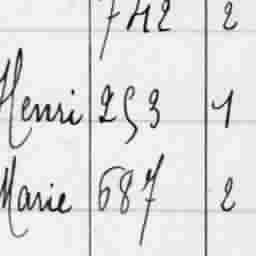 742 2
Henri 253 1
Marie 687 2